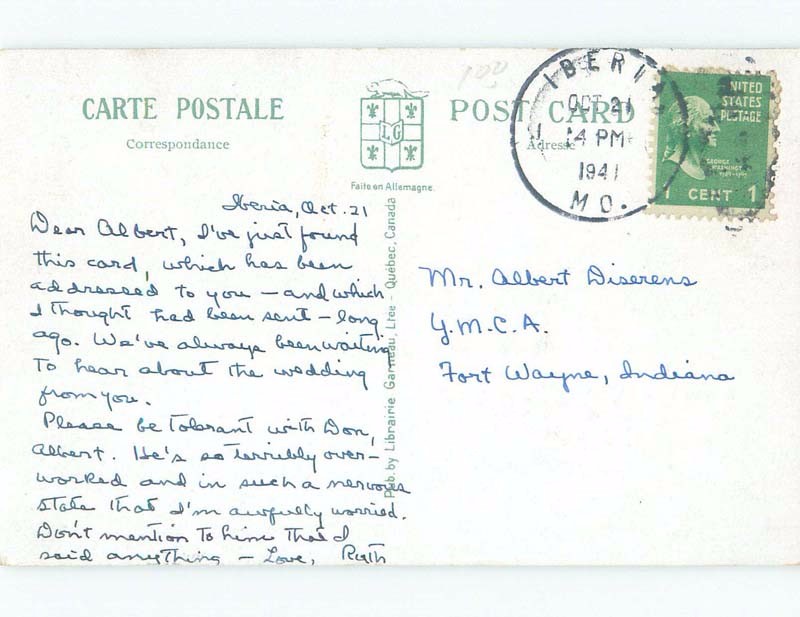 CARTE POSTALE
Correspondance
LG
Faite en Allemagne.
POST CARD
Adresse
100
IBERIA
OCT 21
4 PM
1941
MO.
UNITED
STATES
POSTAGE
GEORGE
WASHINGTON
CENT 1
Iberia, Oct. 21
Dear Albert, I've just found
this card, which has been
addressed to you – and which
I thought had been sent – long
ago. We've always been waiting
to hear about the wedding
from you.
Please be tolerant with Don,
Albert. He's so terribly over-
worked and in such a nervous
state that I'm awfully worried.
Don't mention to him that I
said anything – Love, Ruth
Pub. by Librairie Garneau, Ltee - Québec, Canada
Mr. Albert Diserens
Y.M.C.A.
Fort Wayne, Indiana